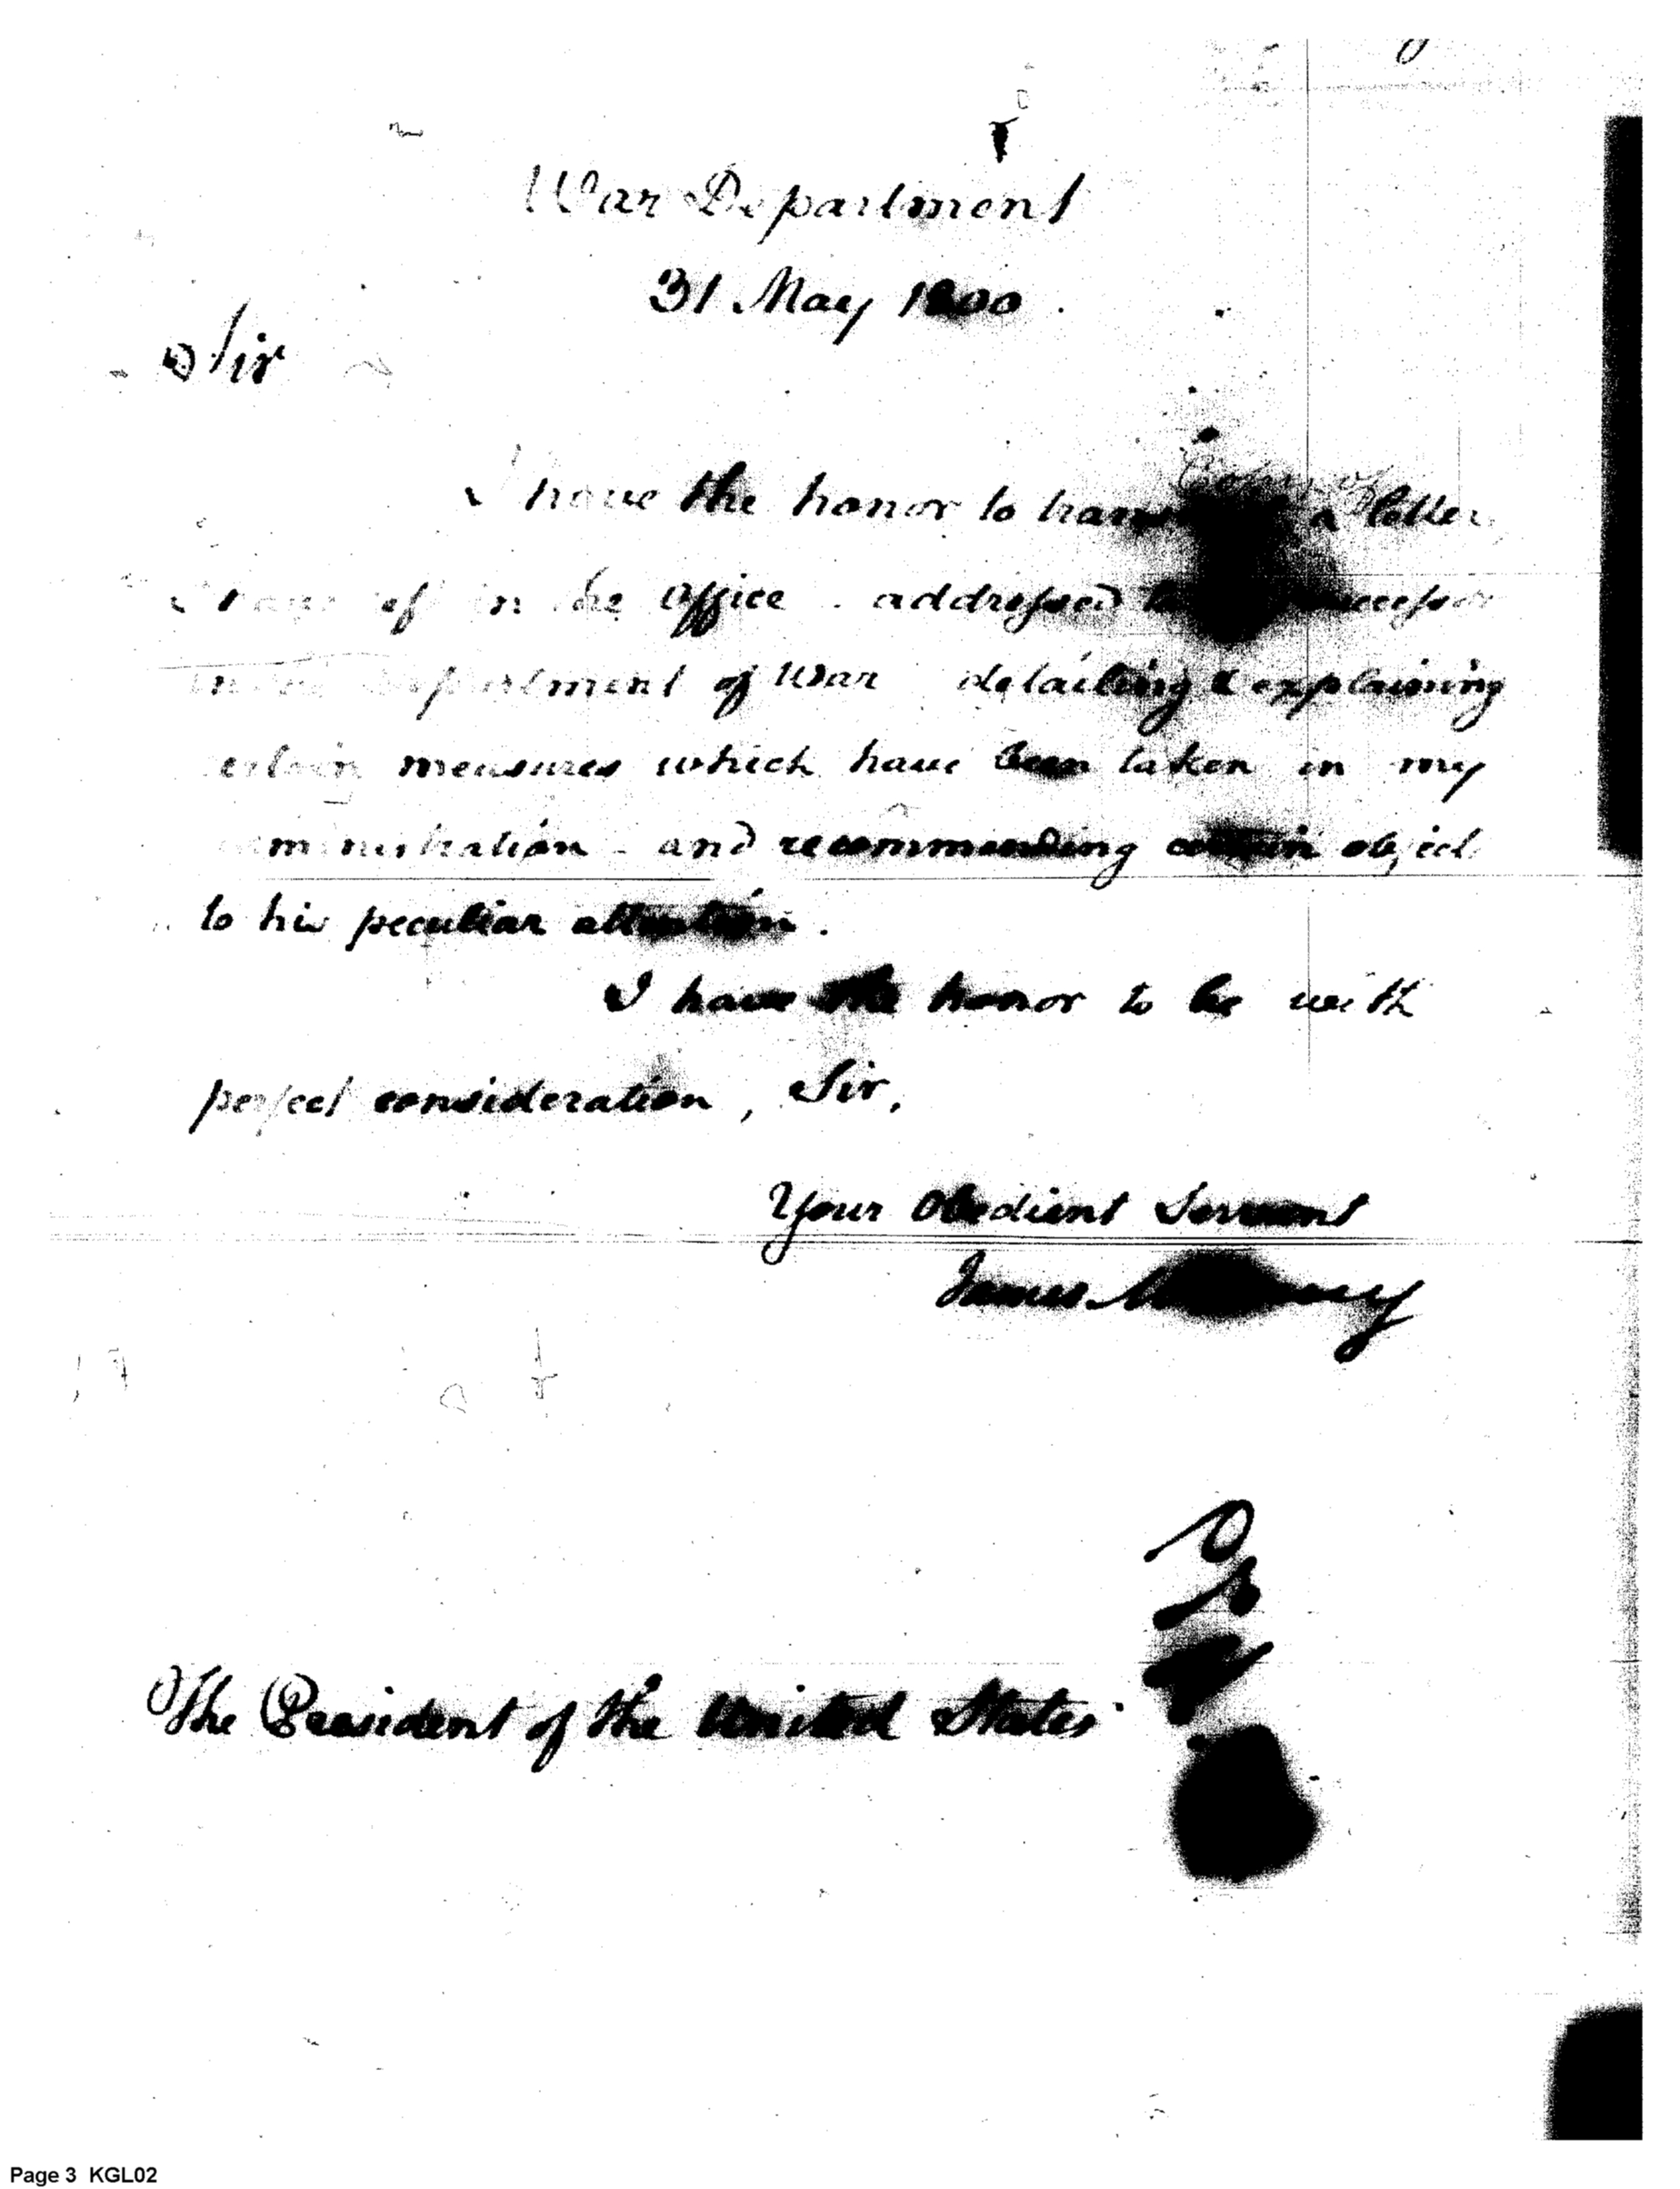 War Department
31 May 1800.
Sir
Copy of
I have the honor to a letter
in the Office addressed
Department of War detailing & explaining
certain measures which have been taken in my
administration - and recommending certain object
to his peculiar attention.
I have the honor to be with
perfect consideration, Sir,
Your Obedient Servant
James
The President of the United States
Page 3 KGL02